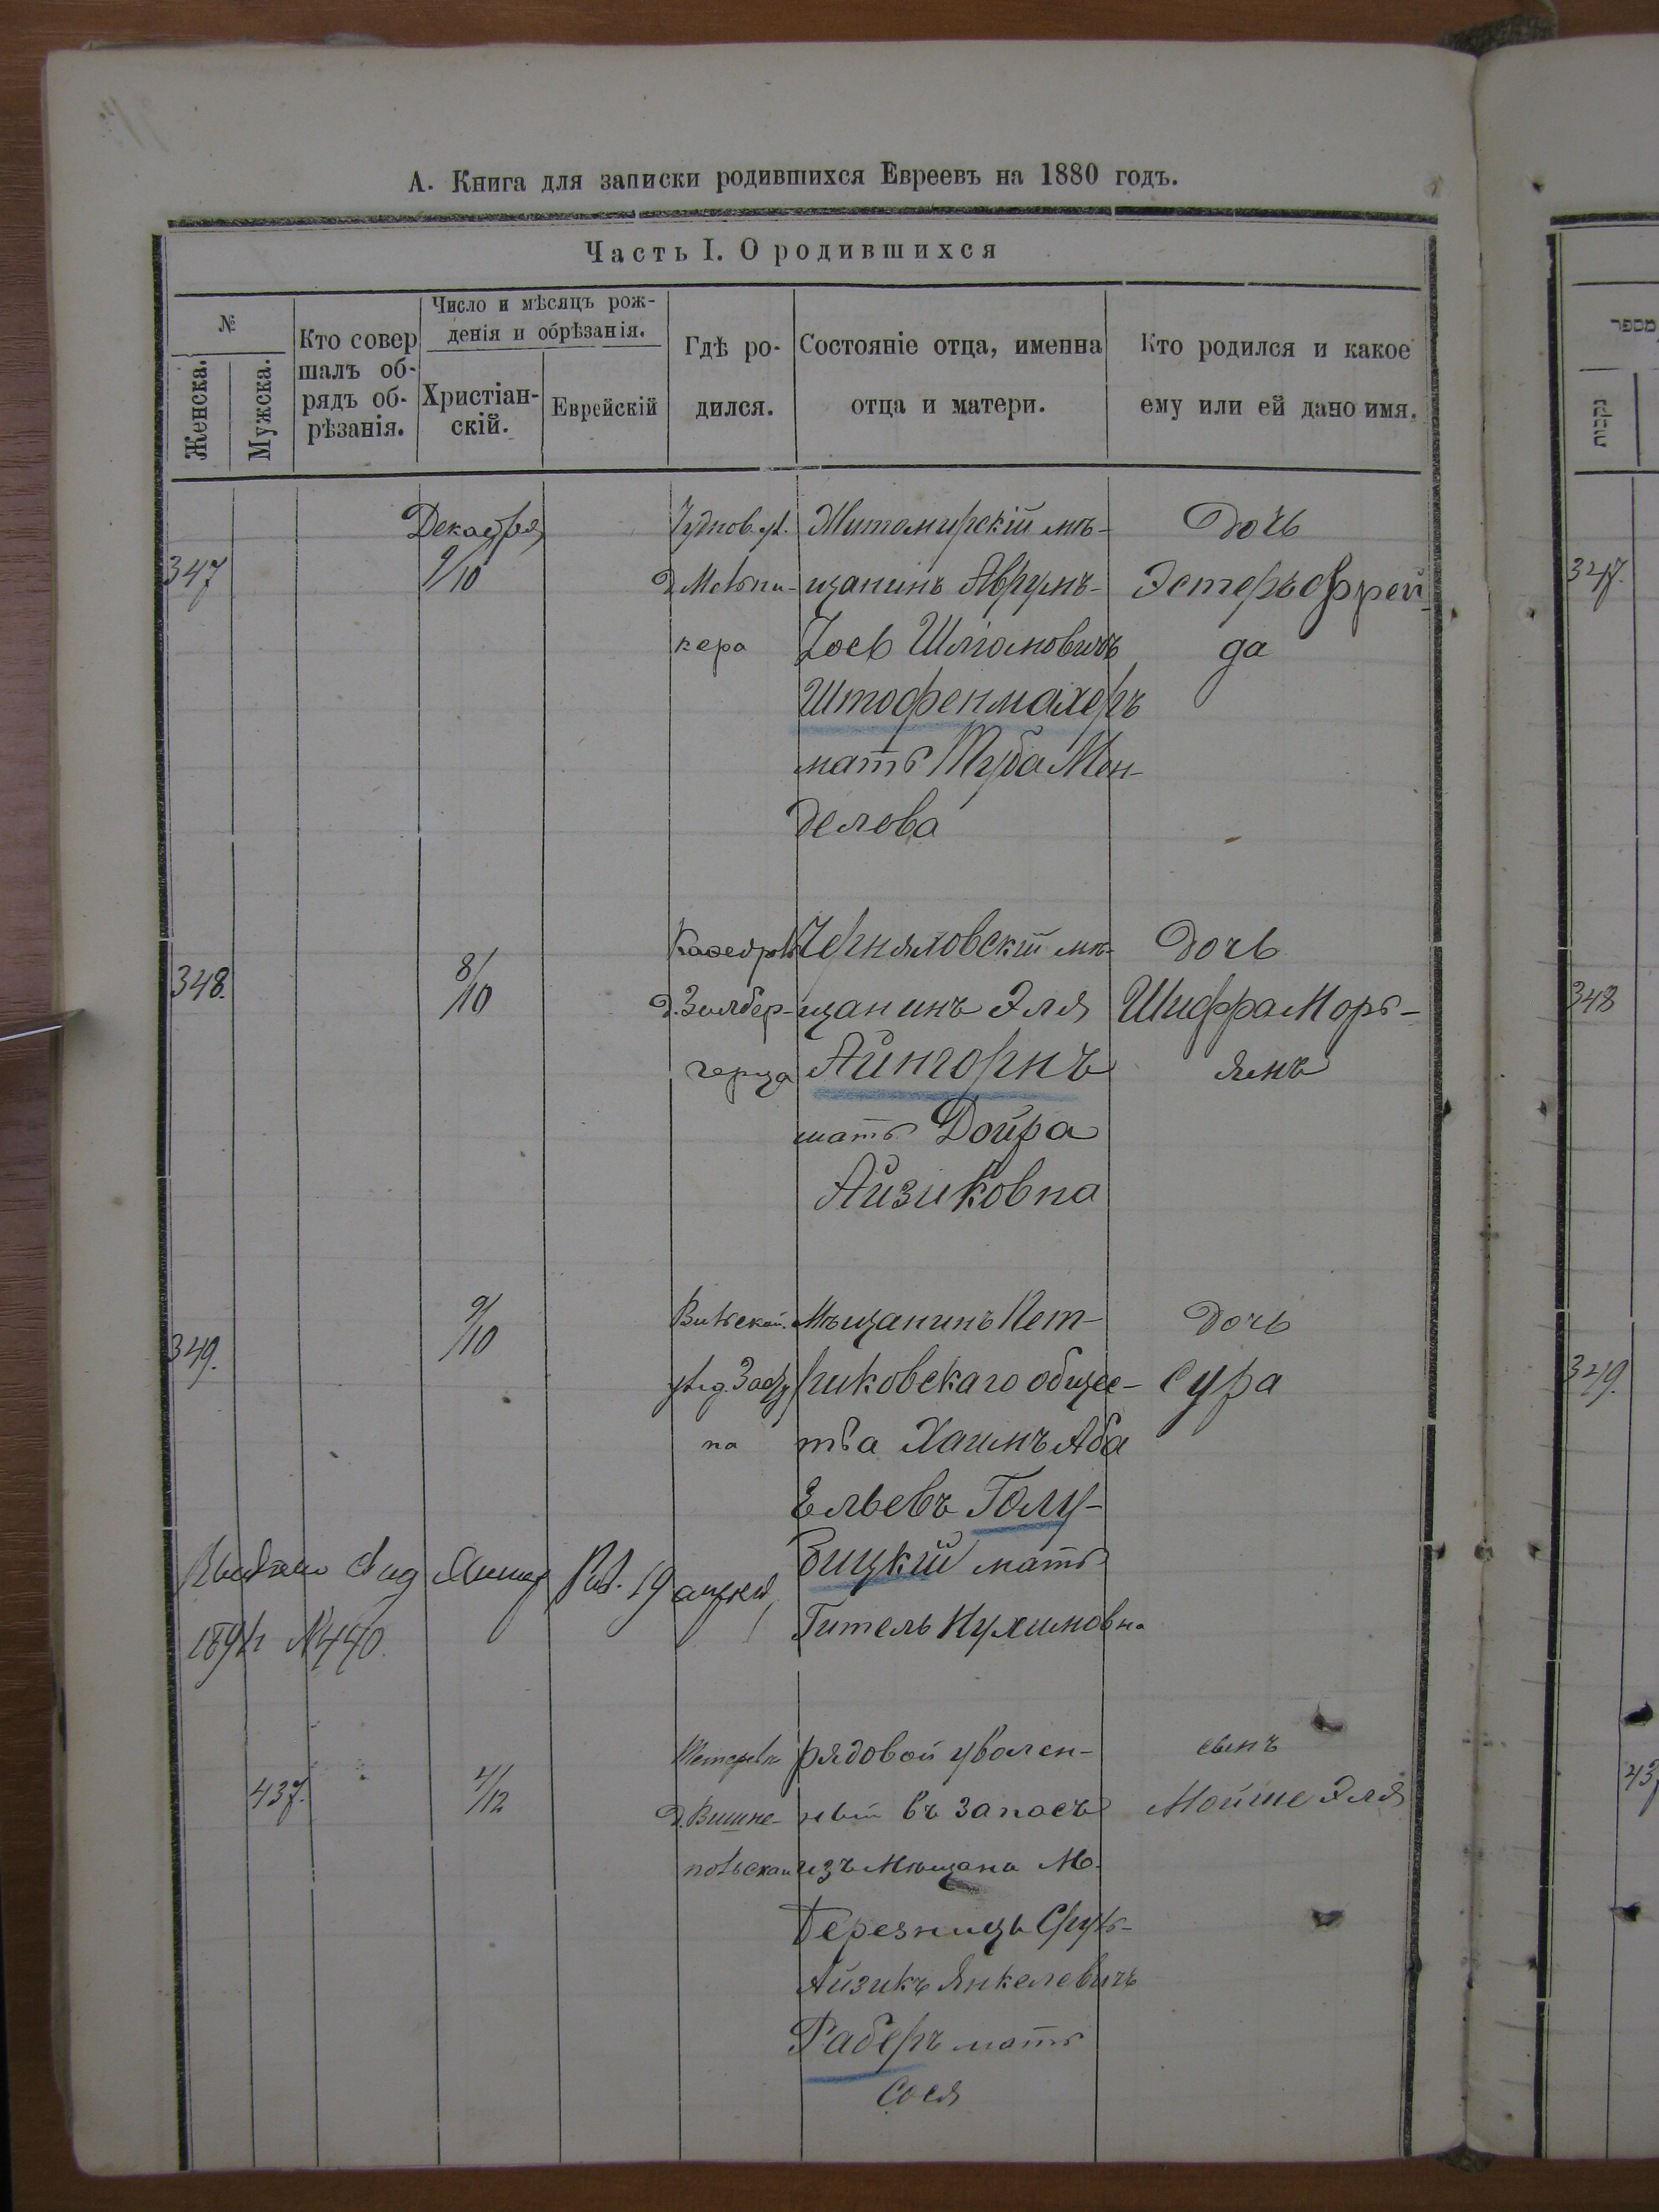 А. Книга для записки родившихся Евреевъ на 1880 годъ.
Часть I. О родившихся
№
Женска.
Мужска.
Кто совер
шалъ об-
рядъ об-
рѣзанія.
Число и мѣсяцъ рож-
денія и обрѣзанія.
Христіан-
скій.
Еврейскій
Гдѣ ро-
дился.
Состояніе отца, именна
отца и матери.
Кто родился и какое
ему или ей дано имя.
מספר
נקבות
347
Декабря
9/10
Чуднов. ул.
кера
Житомирскій мѣ-
щанинъ Аврумъ-
Іось Шліомовичъ
Штофенмахеръ
мать Туба Мен-
делова
Дочь
Эстеръ Фрей
да
347.
348.
8/10
д. Зильбер-
герца
Черняховскій мѣ-
щанинъ Эля
Айнгорнъ
мать Дойра
Айзиковна
Дочь
Шифра Морь-
ямъ
348
349.
9/10
Вильской.
на
Мѣщанинъ Пет-
риковскаго общес-
тва Хаимъ Аба
Ельевъ Голу-
бицкій мать
Гитель Нухимовна
Дочь
Сура
349.
№ 440.
437.
4/12
д. Вишне-
польскаи
рядовой уволен-
ный въ запасъ
изъ Мѣщанъ М.
Березницъ Сруль-
Айзикъ Янкелевичъ
Раберъ мать
Сося
сынъ
Мойше Эля
437